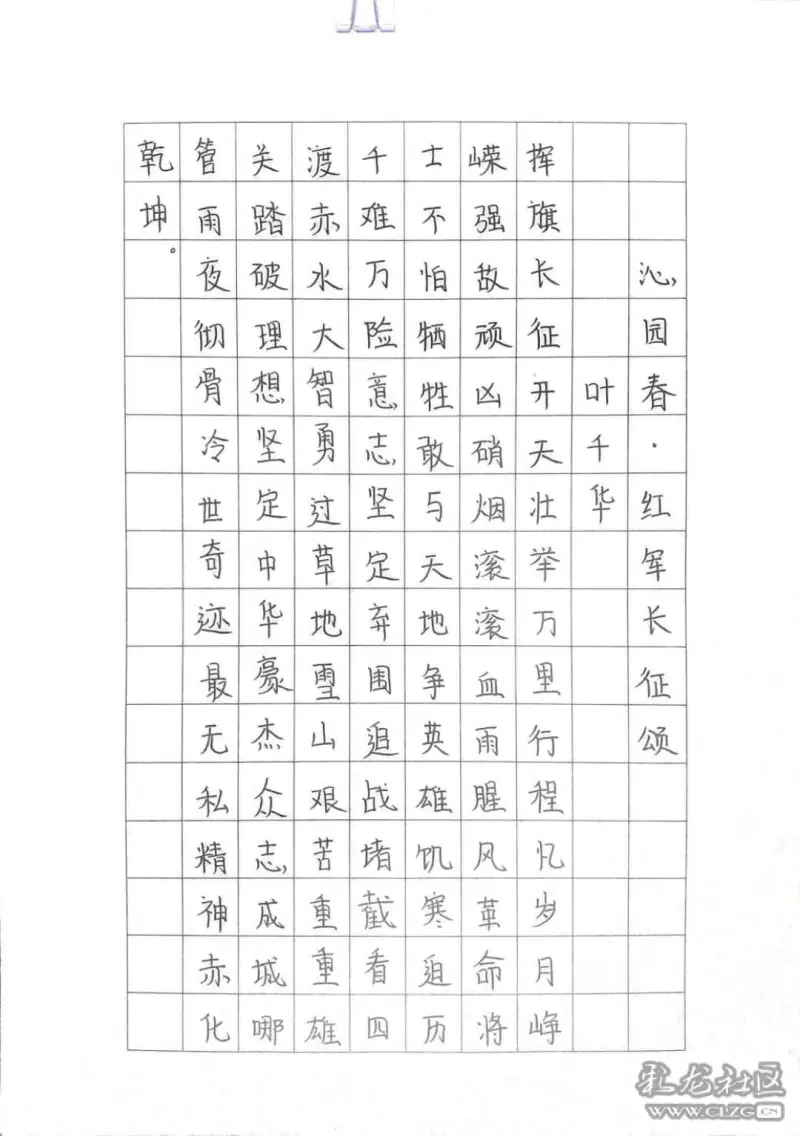 沁园春·红军长征颂
叶千华
挥旗长征开天壮举万里行程忆岁月峥
嵘强敌顽凶硝烟滚滚血雨腥风革命将
士不怕牺牲敢与天地争英雄饥寒迫历
千难万险意志坚定弃围追战堵截看四
渡赤水大智勇过草地雪山艰苦重重雄
关踏破理想坚定中华豪杰众志成城哪
管雨夜彻骨冷世奇迹最无私精神赤化
乾坤。
乳龙社区
WWW.CLZG.CN